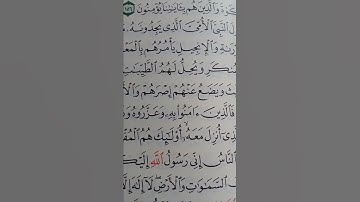 كَوٰةَ وَٱلَّذِينَ هُم بِـَٔايَٰتِنَا يُؤْمِنُونَ ١٥٦
ٱلنَّبِىَّ ٱلْأُمِّىَّ ٱلَّذِى يَجِدُونَهُۥ
وَٱلْإِنجِيلِ يَأْمُرُهُم بِٱلْمَعْ
وَيُحِلُّ لَهُمُ ٱلطَّيِّبَٰتِ
وَيَضَعُ عَنْهُمْ إِصْرَهُمْ وَٱلْ
فَٱلَّذِينَ ءَامَنُوا۟ بِهِۦ وَعَزَّرُوهُ وَ
أُنزِلَ مَعَهُۥٓ أُو۟لَٰٓئِكَ هُمُ ٱلْمُفْ
ٱلنَّاسُ إِنِّى رَسُولُ ٱللَّهِ إِلَيْكُ
ٱلسَّمَٰوَٰتِ وَٱلْأَرْضِ لَآ إِلَٰهَ إِلَّا